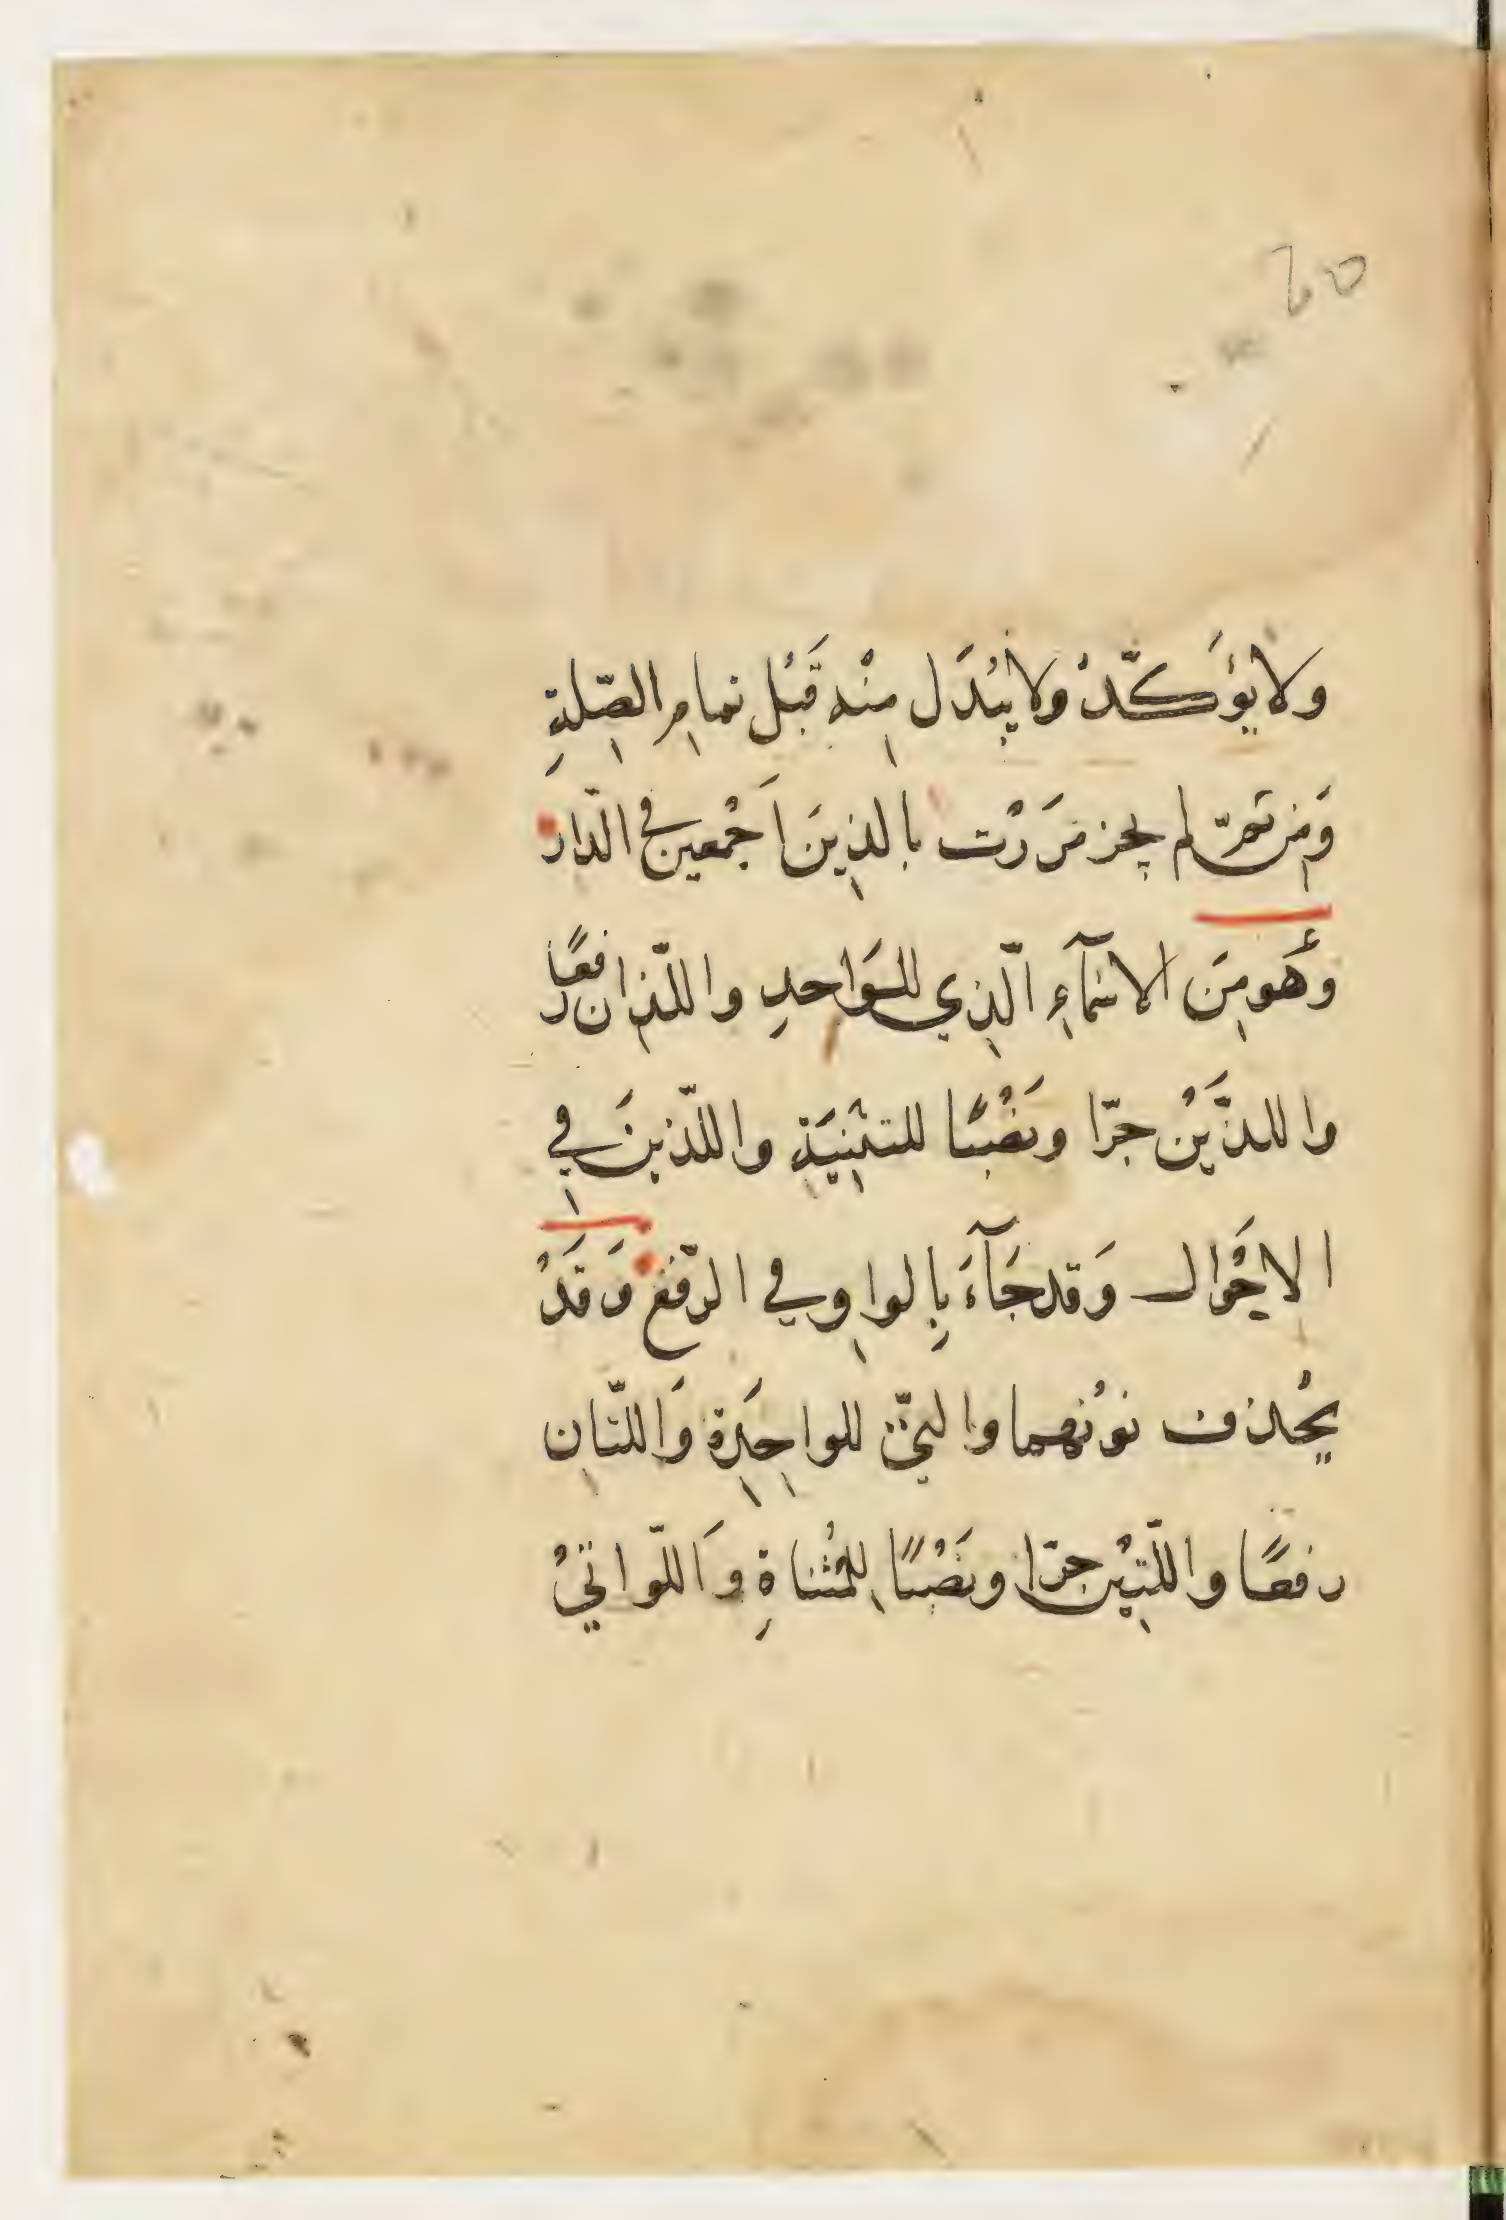 60
ولا يؤَكّدْ ولا يُبْدَل مِنْه قَبْل تمامِ الصِّلةِ
وَمِن ثمّ لم يجز مَرَرْت بالذِينَ اَجْمعين في الدّار
وَهَو مِنَ الاسْمآءِ الّذِي للوَاحدِ واللّذانِ رفعًا
واللذَّيْن جرّا ونصْبًا للتثنِيَةِ واللّذينَ فِي
الاحْوال وَقد جَآءَ بِالواوِ في الرّفْع وَقَدْ
يحْذف نوْنهما والتيّ للواحِدَةِ وَاللتّانِ
رفعًا واللّتيْنِ جرّا ونَصْبًا لِلمُثناةِ وَاللّواتيْ